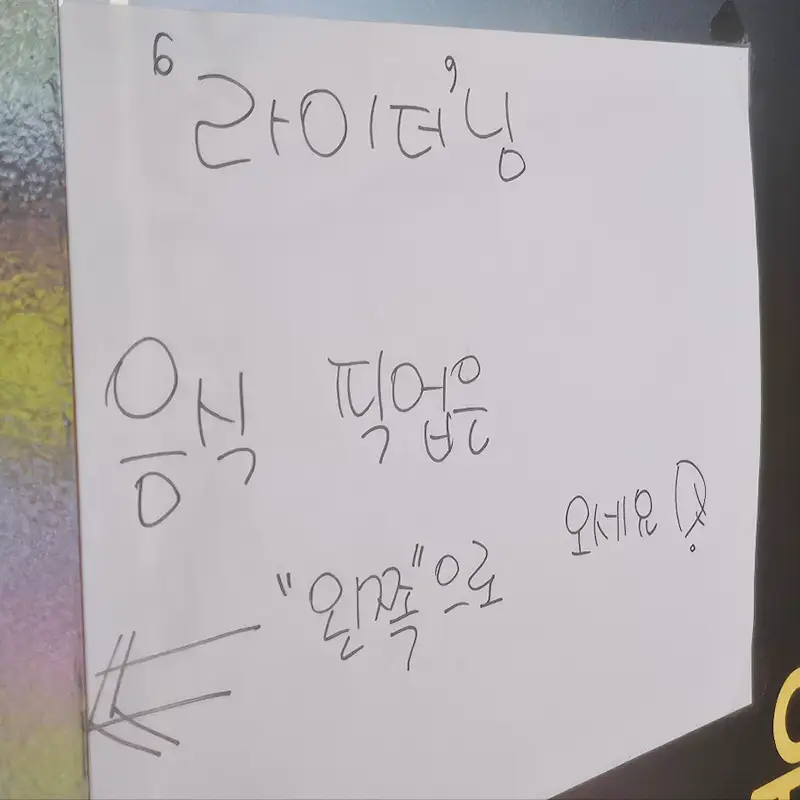 '라이더'님
음식 픽업은
"왼쪽"으로 오세요!